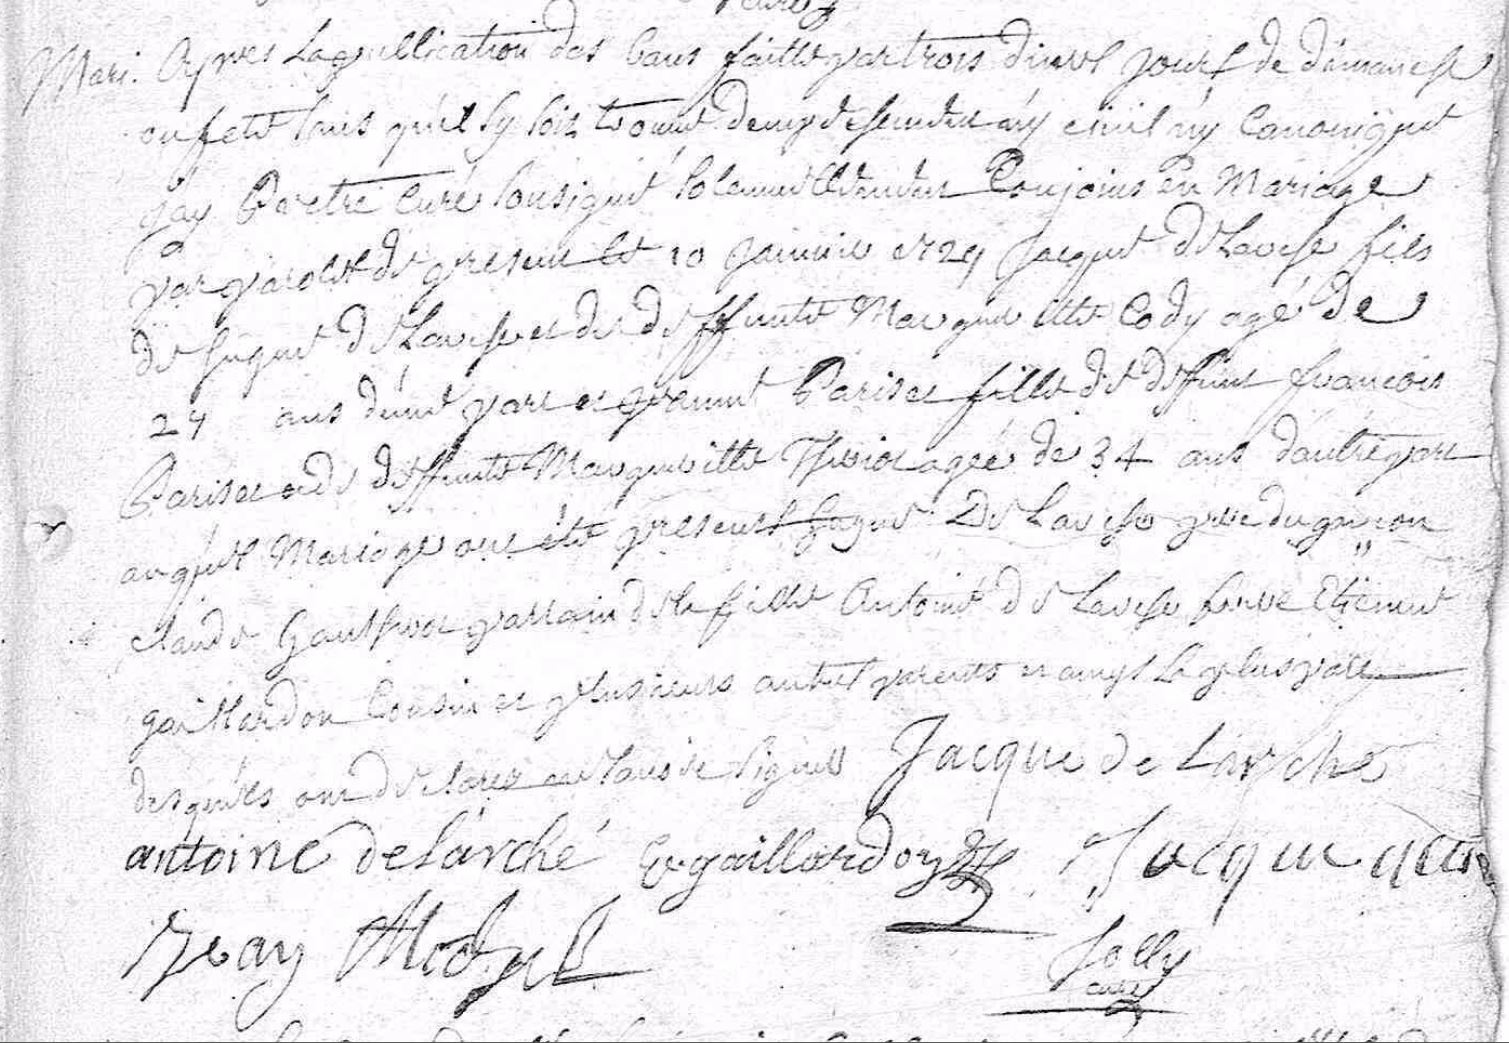 Mari. Apres la publication des bans faitte par trois divers jours de dimanche
ou fete sans qu'il sy soit trouvé d'empeschement ny civil ny canonique
jay Pretre Curé sousigné solennellement Conjoins En Mariage
par parolle de present le 10 janvier 1729 Jacque De Larche fils
de Jaque De Larche et de deffunte Margueritte Cody agé de
24 ans d'une part et Jeanne Pariset fille de deffunt francois
Pariset et de deffunte Margueritte Theviot agée de 34 ans dautre part
auquel Mariage ont été presents Jaque De Larche pere du garcon
claude Gauthrot parrain de la fille Antoine De Larche frere Etienne
gaillardon Cousin et plusieurs autres parents et amys la plus part
desquels ont declarez ne savoir signer Jacque de Larche
antoine de Larché E gaillardon Jacque
Jean
Jolly
curé